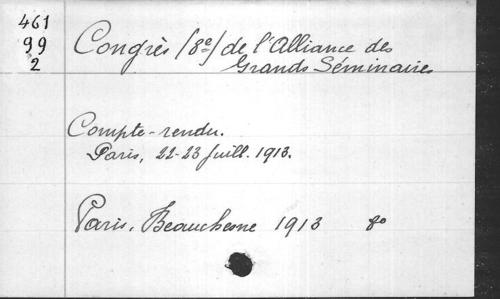 461
99
2
Congrès (8e) de l'Alliance des
Grands Séminaires
Compte-rendu.
Paris, 22-23 Juill. 1913.
Paris, Beauchesne 1913 8o